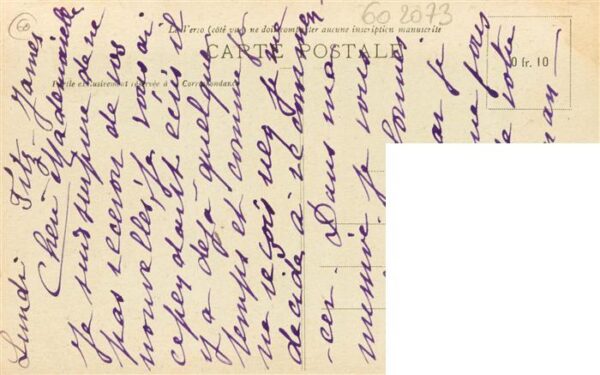 60
602073
Le Verso (côté vue) ne doit comporter aucune inscription manuscrite
CARTE POSTALE
Partie exclusivement réservée à la Correspondance
0 fr. 10
Lundi Fitz-James
Cher Mademoiselle
Je suis surprise de ne
pas recevoir de vos
nouvelles, je vous ai
cependant écris il
y a déjà quelque
temps et comme je
ne reçois rien je me
décide à recommen-
cer. Dans ma
missive je vous
donnai
car je
que vous
de votre
man-